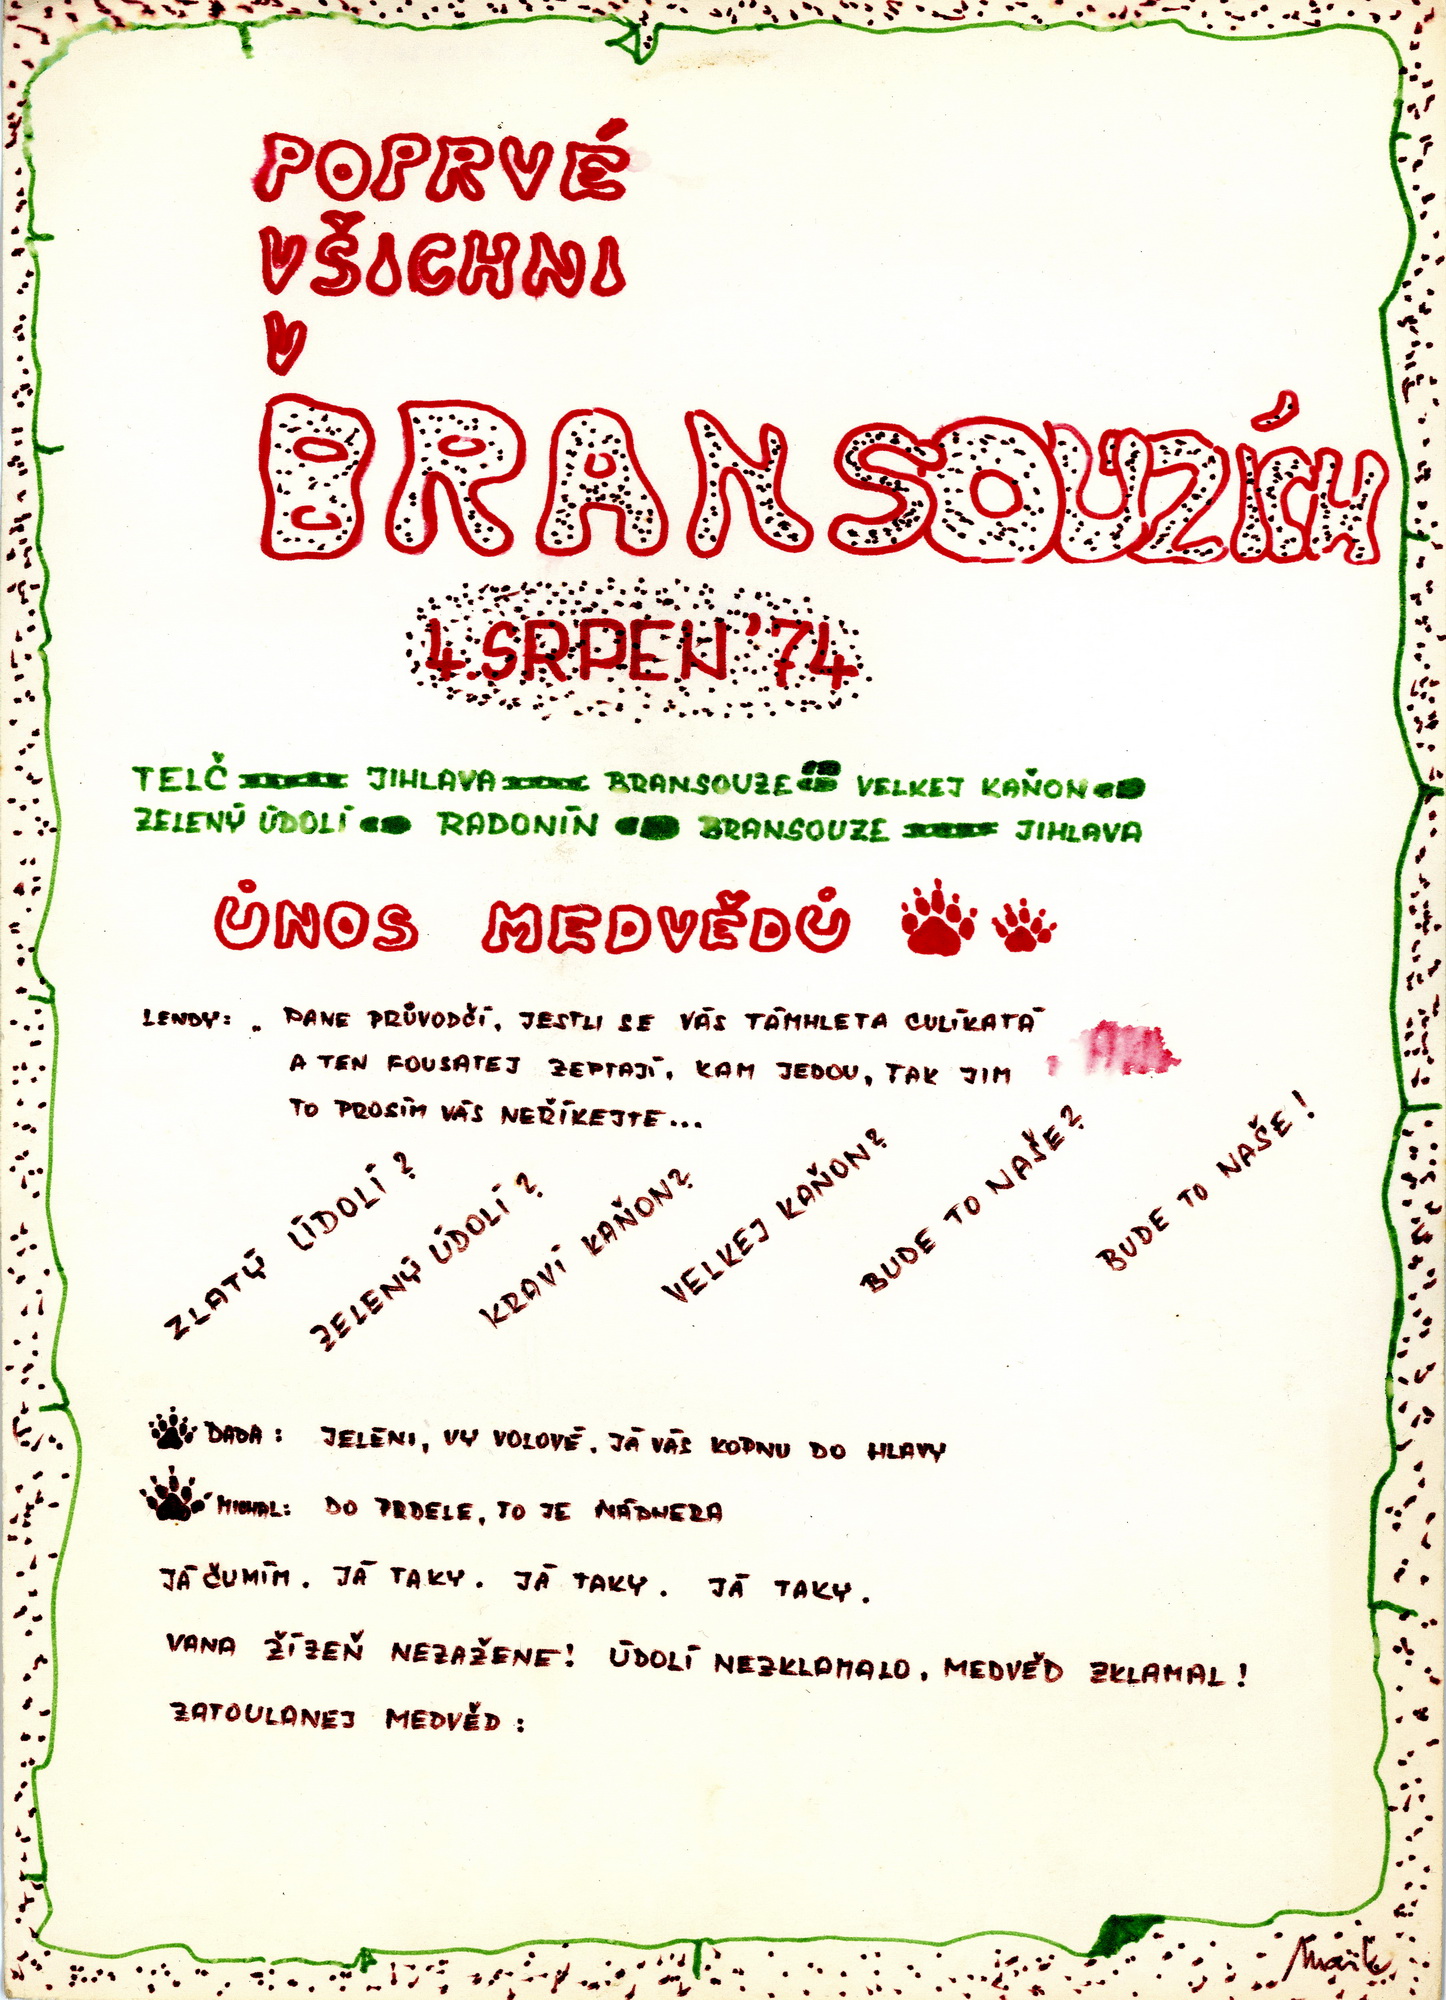 POPRVÉ
VŠICHNI
V
BRANSOUZÍCH
4. SRPEN '74
TELČ JIHLAVA BRANSOUZE VELKEJ KAŇON
ZELENÝ ÚDOLÍ RADONÍN BRANSOUZE JIHLAVA
ŮNOS MEDVĚDŮ
LENDY: „ PANE PRŮVODČÍ, JESTLI SE VÁS TÁMHLETA CULÍKATÁ
A TEN FOUSATEJ ZEPTAJÍ, KAM JEDOU, TAK JIM
TO PROSÍM VÁS NEŘÍKEJTE...
ZLATÝ ÚDOLÍ?
ZELENÝ ÚDOLÍ?
KRAVÍ KAŇON?
VELKEJ KAŇON?
BUDE TO NAŠE?
BUDE TO NAŠE!
DADA: JELENI, VY VOLOVÉ. JÁ VÁS KOPNU DO HLAVY
MICHAL: DO PRDELE, TO JE NÁDHERA
JÁ ČUMÍM. JÁ TAKY. JÁ TAKY. JÁ TAKY.
VANA ŽÍZEŇ NEZAŽENE! ÚDOLÍ NEZKLAMALO, MEDVĚD ZKLAMAL!
ZATOULANEJ MEDVĚD: